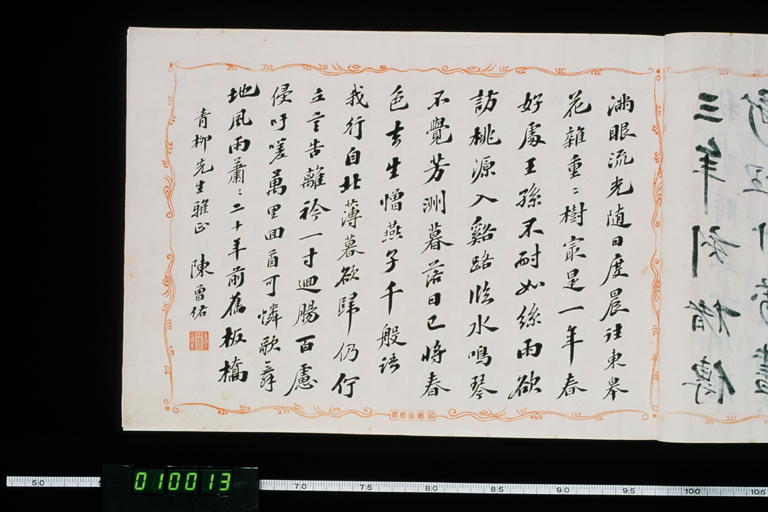 滿眼流光随日度晨往東皋
花雜重〻樹冣是一年春
好處王孫不耐如絲雨欲
訪桃源入谿路臨水鳴琴
不覺芳洲暮落日已將春
色去生憎燕子千般語
我行自北薄暮欲歸仍佇
立言告離衿一寸廻腸百慮
侵吁嗟萬里回首可憐歌舞
地風雨蕭〻二十年前舊板橋
青柳先生雅正 陳曾佑
010013
5.0 7.0 7.5 8.0 8.5 9.0 9.5 10.0 10.5